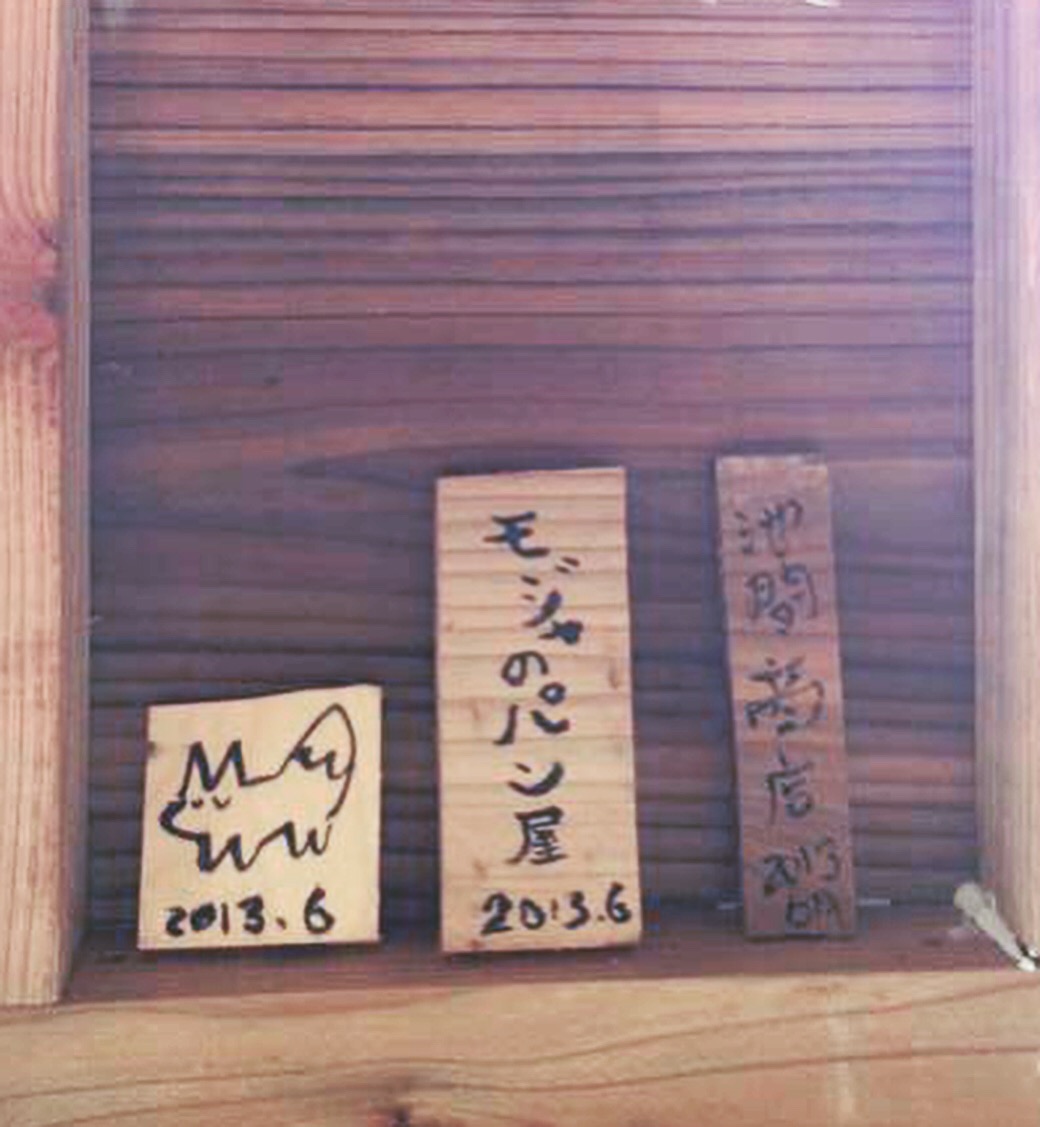 2013.6
モジャのパン屋
2013.6
池間商店
2013